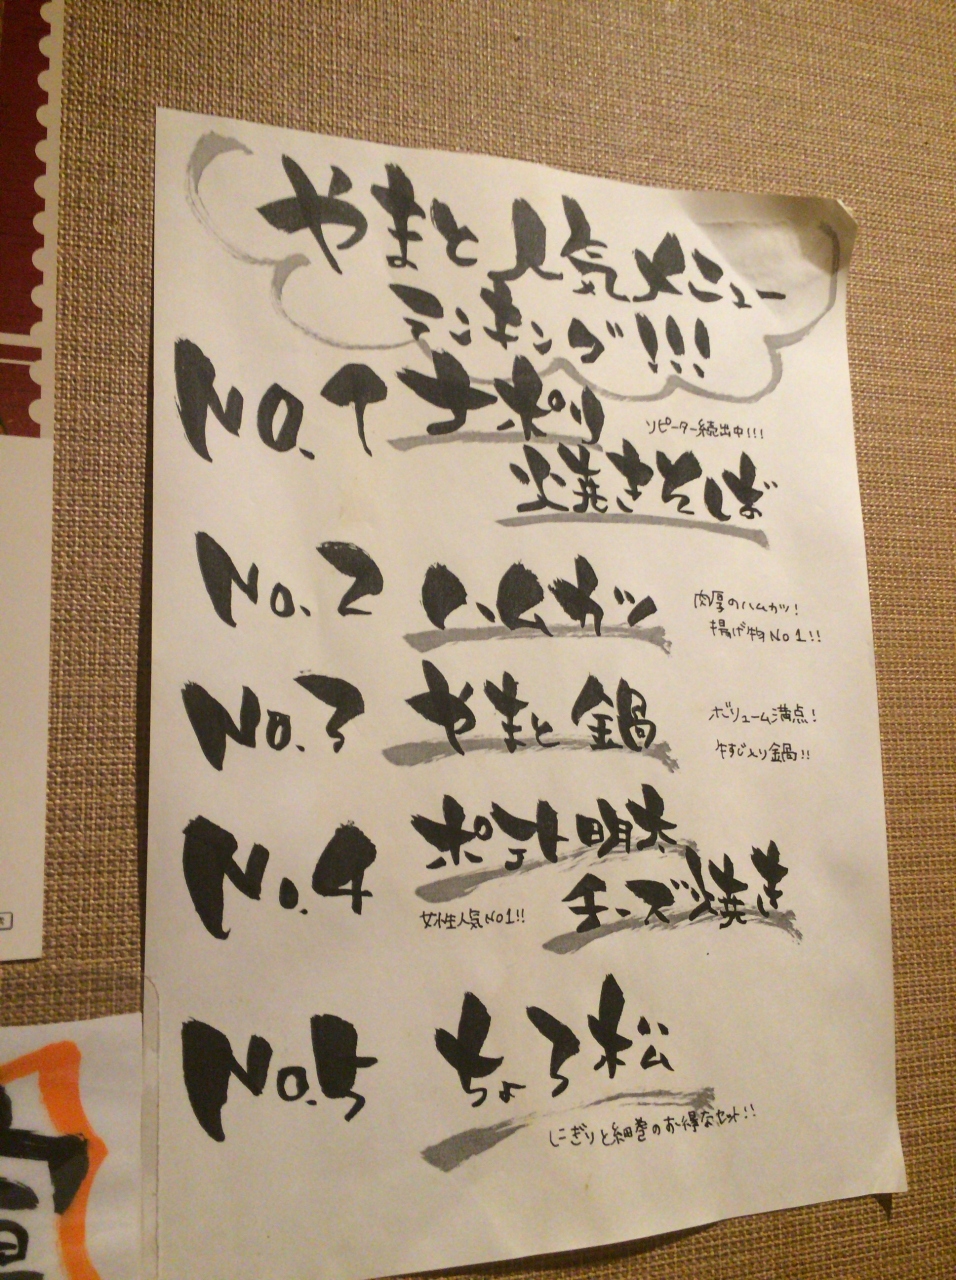 やまと 人気メニュー
ランキング!!!
No.1 ナポリ
焼きそば
リピーター続出中!!!
No.2 ハムカツ
肉厚のハムカツ!
揚げ物No1!!
No.3 やまと鍋
ボリューム満点!
牛すじ入り鍋!!
No.4 ポテト明太
チーズ焼き
女性人気No1!!
No.5 ちょろ松
にぎりと細巻のお得なセット!!